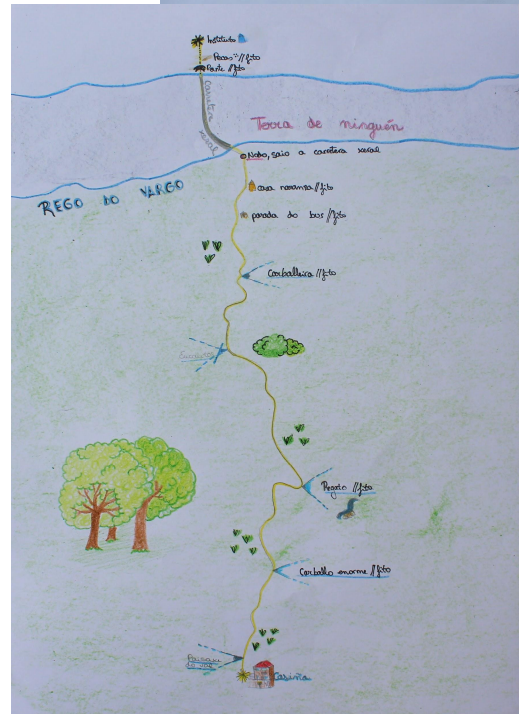 Instituto
Pazos //fito
Ponte //fito
carretera xeral
Terra de ninguén
Nodo, saio a carretera xeral
REGO DO VARGO
casa naranxa//fito
parada do bus //fito
Carballeira //fito
Regato //fito
Carballo enorme //fito
Casiña